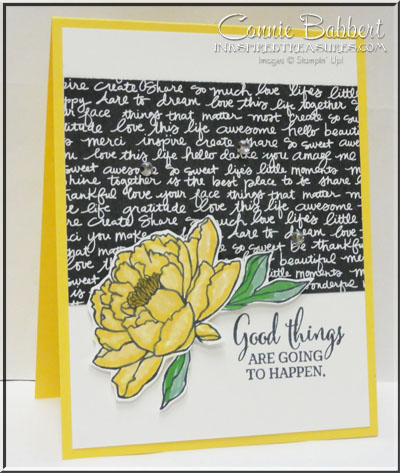 Connie Babbert
INASPIREDTREASURES.COM
Images © Stampin' Up!
inspire create share so much love life's little
happy dare to dream love this life together
face things that matter most create so
gratitude love this life awesome hello beautiful
merci inspire create share so sweet
you love this life hello darling you amaze me
sweet awesome so sweet life's little moments
shine together is the best place to be share
thankful love life face things that matter
life gratitude love this life awesome
create share so much love life's little
merci you make dare to dream love
that matter so sweet be thankful
beautiful me
little moments
wonderful
Good things
ARE GOING
TO HAPPEN.